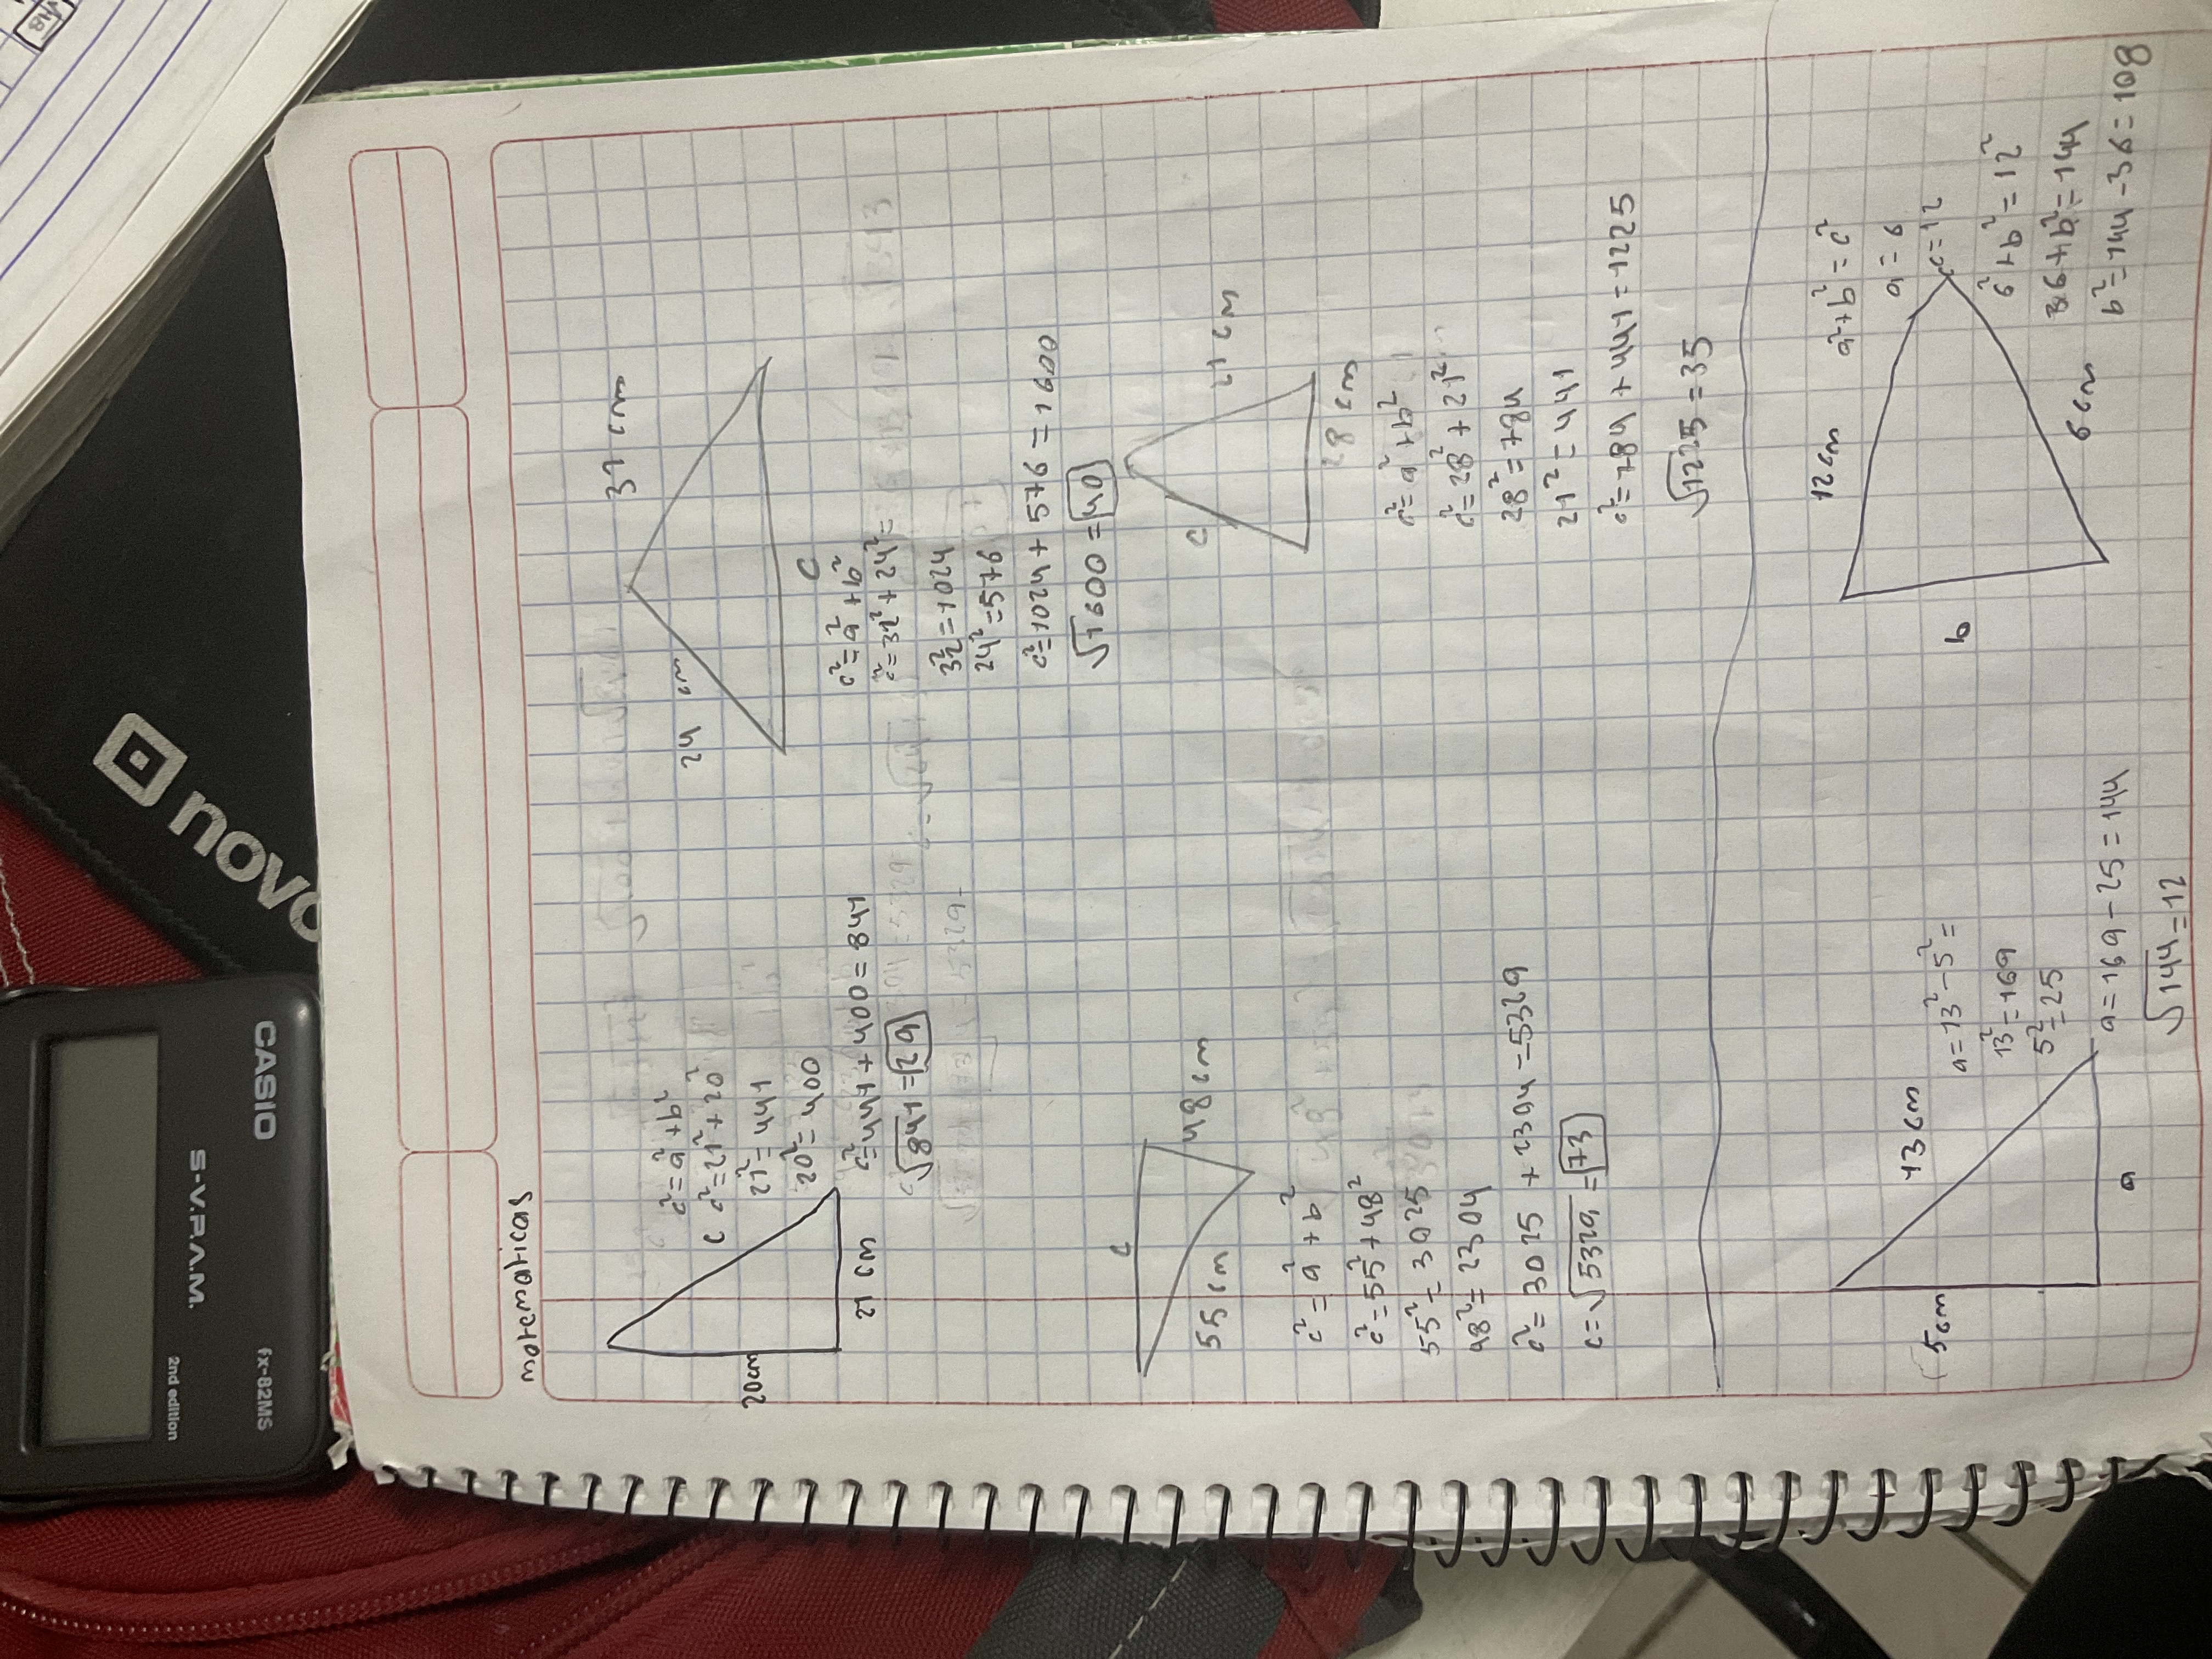 matematicas
20cm
21 cm
c
c²=a²+b²
c²=21²+20²
21²=441
20²=400
c²=441+400=841
√841=29
32 cm
24 cm
c
c²=a²+b²
c²=32²+24²=
32²=1024
24²=576
c²=1024+576=1600
√1600=40
c
48cm
55cm
c²=a²+b²
c²=55²+48²
55²=3025
48²=2304
c²=3025+2304=5329
c=√5329=73
c
21cm
28cm
c²=a²+b²
c²=28²+21²
28²=784
21²=441
c²=784+441=1225
√1225=35
5cm
13cm
a
a=13²-5²=
13²=169
5²=25
a=169-25=144
√144=12
12cm
b
6cm
a²+b²=c²
a=6
c=12
6²+b²=12²
36+b²=144
b²=144-36=108
CASIO
S-V.P.A.M.
fx-82MS
2nd edition
novo